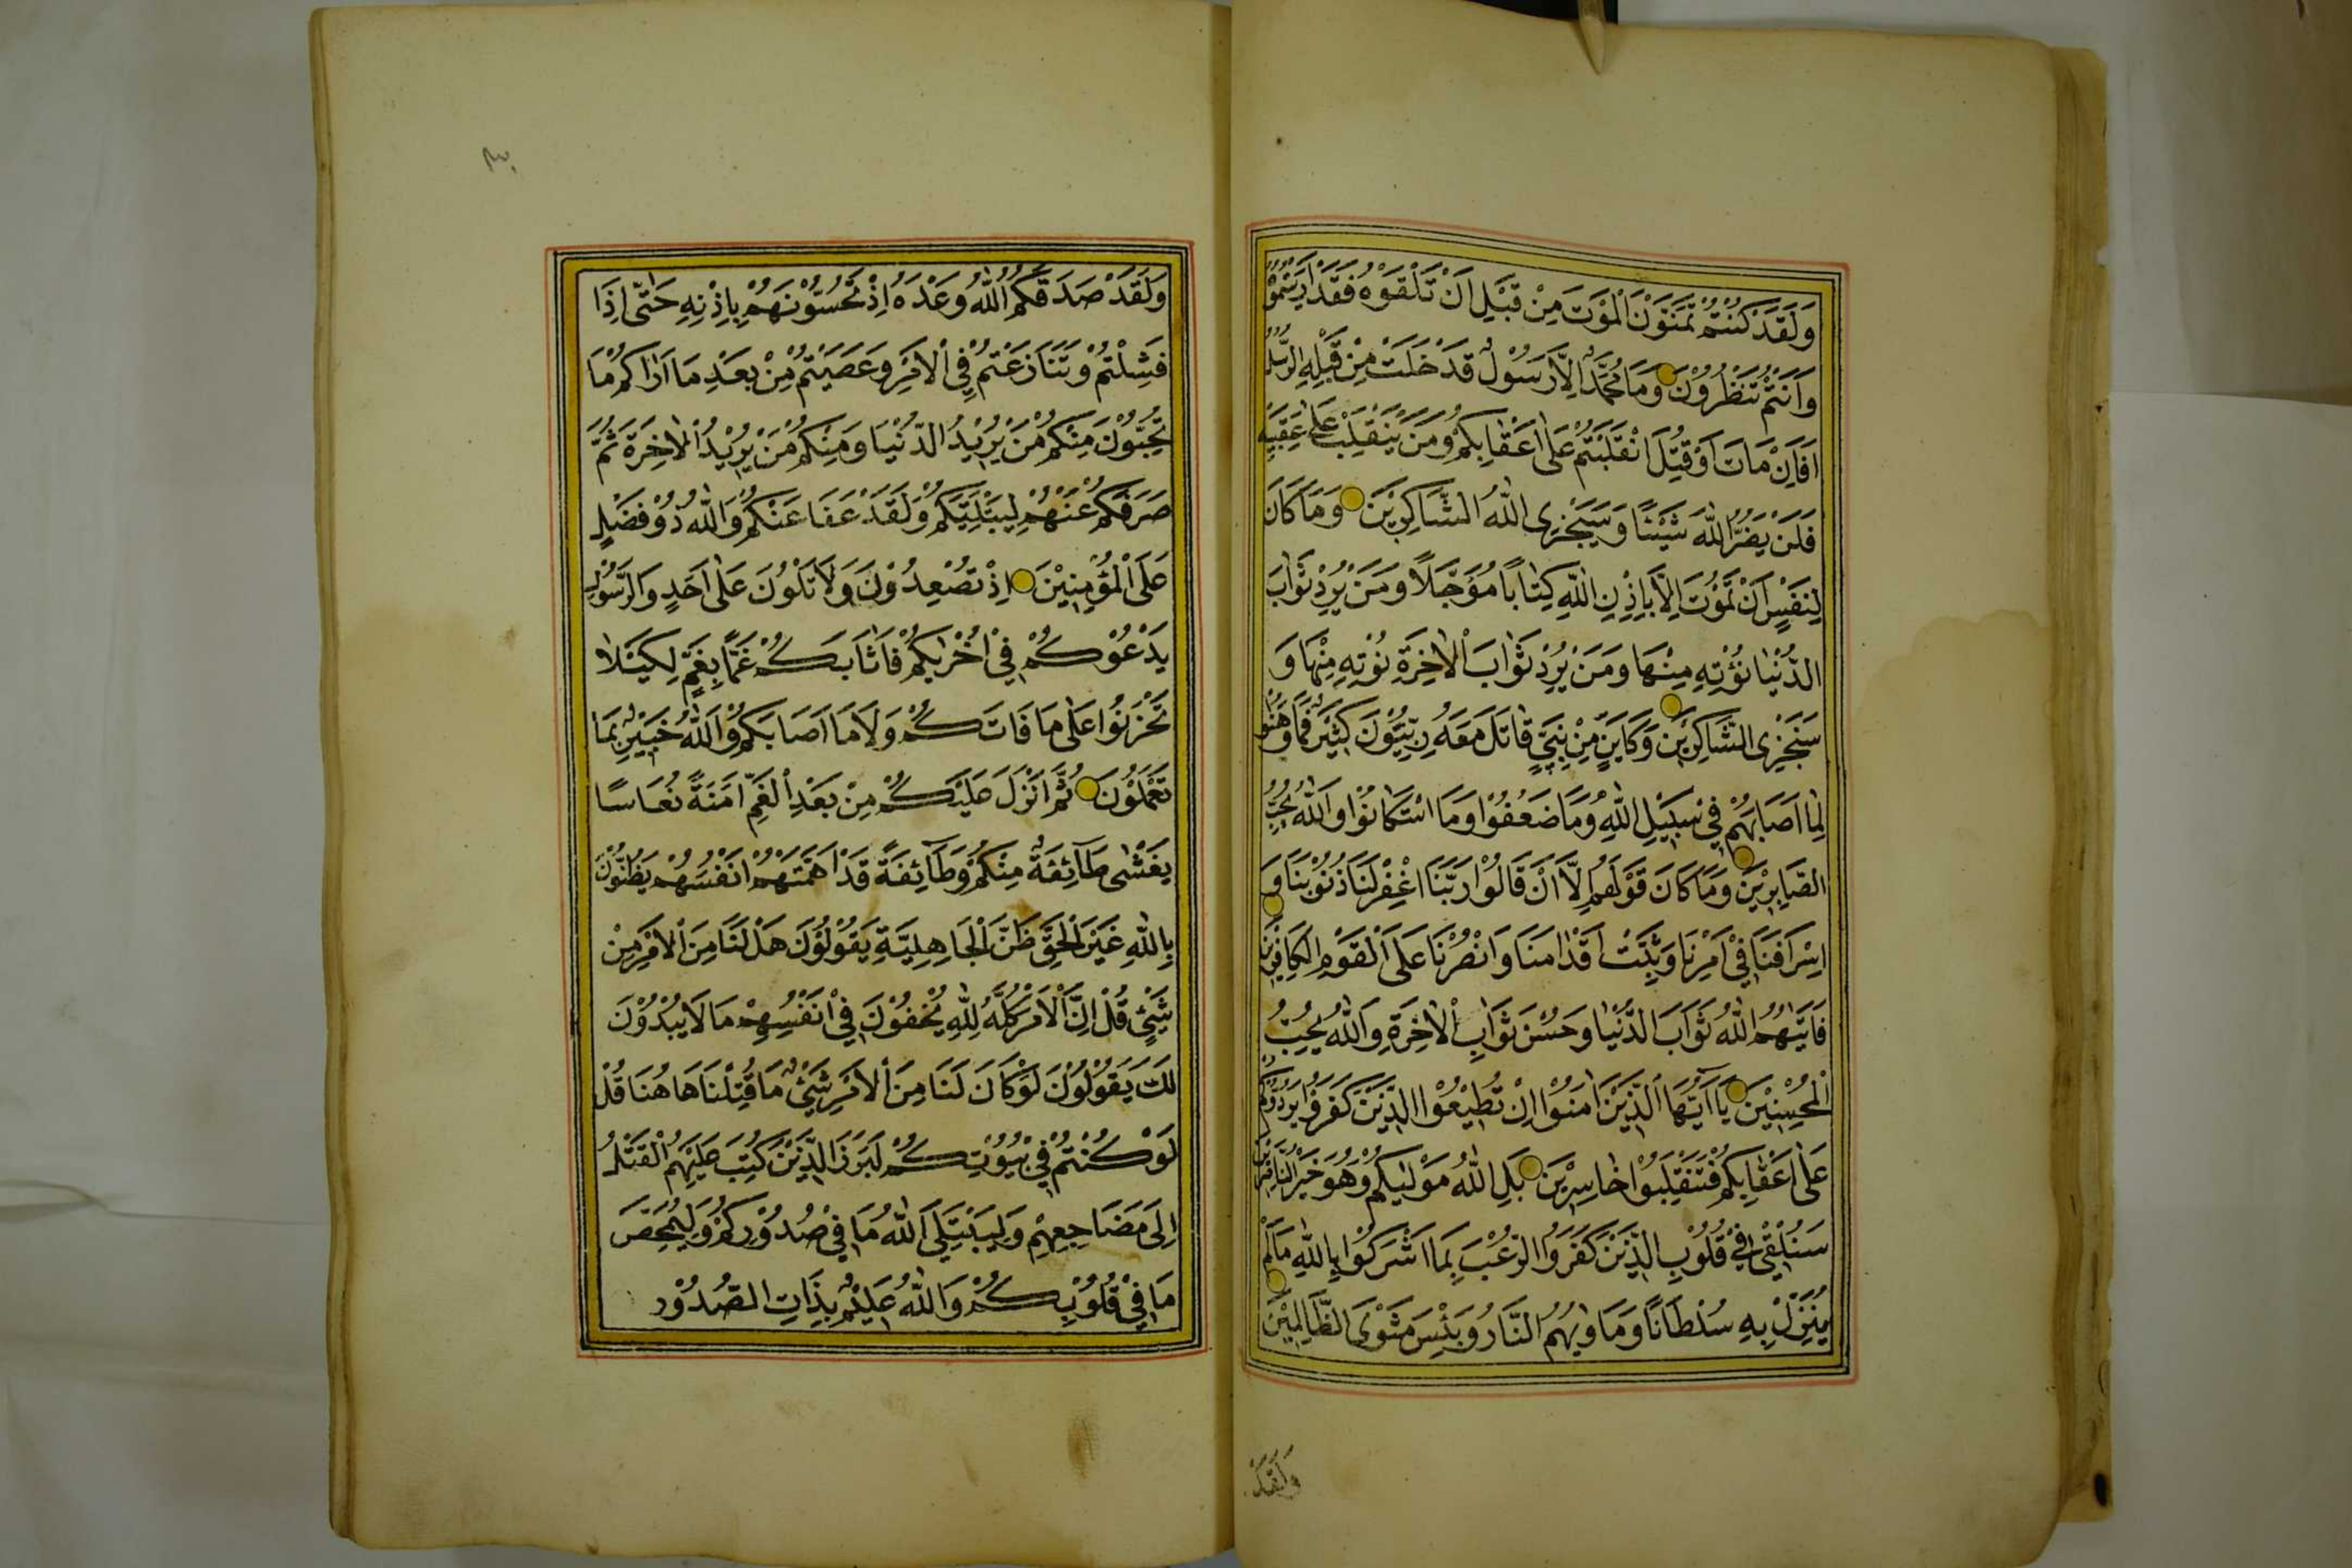 وَلَقَدْ كُنْتُمْ تَمَنَّوْنَ الْمَوْتَ مِنْ قَبْلِ اَنْ تَلْقَوْهُ فَقَدْ رَاَيْتُمُوهُ
وَاَنْتُمْ تَنْظُرُوْنَ وَمَا مُحَمَّدٌ اِلَّا رَسُوْلٌ قَدْ خَلَتْ مِنْ قَبْلِهِ الرُّسُلُ
اَفَاِنْ مَاتَ اَوْ قُتِلَ انْقَلَبْتُمْ عَلٰى اَعْقَابِكُمْ وَمَنْ يَنْقَلِبْ عَلٰى عَقِبَيْهِ
فَلَنْ يَضُرَّ اللّٰهَ شَيْئًا وَسَيَجْزِى اللّٰهُ الشَّاكِرِيْنَ وَمَا كَانَ
لِنَفْسٍ اَنْ تَمُوْتَ اِلَّا بِاِذْنِ اللّٰهِ كِتَابًا مُؤَجَّلًا وَمَنْ يُرِدْ ثَوَابَ
الدُّنْيَا نُؤْتِهِ مِنْهَا وَمَنْ يُرِدْ ثَوَابَ الْاٰخِرَةِ نُؤْتِهِ مِنْهَا وَ
سَنَجْزِى الشَّاكِرِيْنَ وَكَاَيِّنْ مِنْ نَبِيٍّ قَاتَلَ مَعَهُ رِبِّيُّوْنَ كَثِيْرٌ فَمَا وَهَنُوا
لِمَا اَصَابَهُمْ فِيْ سَبِيْلِ اللّٰهِ وَمَا ضَعُفُوْا وَمَا اسْتَكَانُوْا وَاللّٰهُ يُحِبُّ
الصَّابِرِيْنَ وَمَا كَانَ قَوْلَهُمْ اِلَّا اَنْ قَالُوْا رَبَّنَا اغْفِرْ لَنَا ذُنُوْبَنَا وَ
اِسْرَافَنَا فِيْ اَمْرِنَا وَثَبِّتْ اَقْدَامَنَا وَانْصُرْنَا عَلَى الْقَوْمِ الْكَافِرِيْنَ
فَاٰتٰيهُمُ اللّٰهُ ثَوَابَ الدُّنْيَا وَحُسْنَ ثَوَابِ الْاٰخِرَةِ وَاللّٰهُ يُحِبُّ
الْمُحْسِنِيْنَ يَا اَيُّهَا الَّذِيْنَ اٰمَنُوْا اِنْ تُطِيْعُوا الَّذِيْنَ كَفَرُوْا يَرُدُّوْكُمْ
عَلٰى اَعْقَابِكُمْ فَتَنْقَلِبُوْا خَاسِرِيْنَ بَلِ اللّٰهُ مَوْلٰيكُمْ وَهُوَ خَيْرُ النَّاصِرِيْنَ
سَنُلْقِيْ فِيْ قُلُوْبِ الَّذِيْنَ كَفَرُوا الرُّعْبَ بِمَا اَشْرَكُوْا بِاللّٰهِ مَا لَمْ
يُنَزِّلْ بِهِ سُلْطَانًا وَمَاْوٰيهُمُ النَّارُ وَبِئْسَ مَثْوَى الظَّالِمِيْنَ
وَلَقَدْ
٣٠
وَلَقَدْ صَدَقَكُمُ اللّٰهُ وَعْدَهُ اِذْ تَحُسُّوْنَهُمْ بِاِذْنِهِ حَتّٰى اِذَا
فَشِلْتُمْ وَتَنَازَعْتُمْ فِي الْاَمْرِ وَعَصَيْتُمْ مِنْ بَعْدِ مَا اَرَاكُمْ مَا
تُحِبُّوْنَ مِنْكُمْ مَنْ يُرِيْدُ الدُّنْيَا وَمِنْكُمْ مَنْ يُرِيْدُ الْاٰخِرَةَ ثُمَّ
صَرَفَكُمْ عَنْهُمْ لِيَبْتَلِيَكُمْ وَلَقَدْ عَفَا عَنْكُمْ وَاللّٰهُ ذُوْ فَضْلٍ
عَلَى الْمُؤْمِنِيْنَ اِذْ تُصْعِدُوْنَ وَلَا تَلْوُنَ عَلٰى اَحَدٍ وَالرَّسُوْلُ
يَدْعُوْكُمْ فِيْ اُخْرٰيكُمْ فَاَثَابَكُمْ غَمًّا بِغَمٍّ لِكَيْلَا
تَحْزَنُوْا عَلٰى مَا فَاتَكُمْ وَلَا مَا اَصَابَكُمْ وَاللّٰهُ خَبِيْرٌ بِمَا
تَعْمَلُوْنَ ثُمَّ اَنْزَلَ عَلَيْكُمْ مِنْ بَعْدِ الْغَمِّ اَمَنَةً نُعَاسًا
يَغْشٰى طَآئِفَةً مِنْكُمْ وَطَآئِفَةٌ قَدْ اَهَمَّتْهُمْ اَنْفُسُهُمْ يَظُنُّوْنَ
بِاللّٰهِ غَيْرَ الْحَقِّ ظَنَّ الْجَاهِلِيَّةِ يَقُوْلُوْنَ هَلْ لَنَا مِنَ الْاَمْرِ مِنْ
شَيْئٍ قُلْ اِنَّ الْاَمْرَ كُلَّهُ لِلّٰهِ يُخْفُوْنَ فِيْ اَنْفُسِهِمْ مَا لَا يُبْدُوْنَ
لَكَ يَقُوْلُوْنَ لَوْ كَانَ لَنَا مِنَ الْاَمْرِ شَيْئٌ مَا قُتِلْنَا هَاهُنَا قُلْ
لَوْ كُنْتُمْ فِيْ بُيُوْتِكُمْ لَبَرَزَ الَّذِيْنَ كُتِبَ عَلَيْهِمُ الْقَتْلُ
اِلٰى مَضَاجِعِهِمْ وَلِيَبْتَلِيَ اللّٰهُ مَا فِيْ صُدُوْرِكُمْ وَلِيُمَحِّصَ
مَا فِيْ قُلُوْبِكُمْ وَاللّٰهُ عَلِيْمٌ بِذَاتِ الصُّدُوْرِ